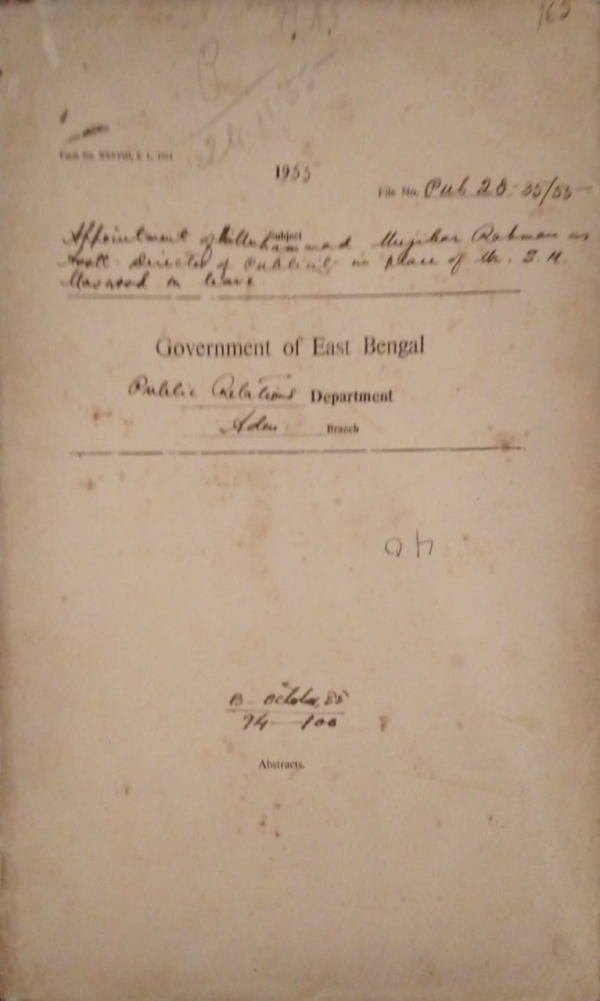 165
24.11.55
Form No. XXXVIII, S. I., 1914
1955
File No. Pub 2S-35/55
Subject
Appointment of Mr. Muhammad Mujibar Rahman as
Asstt. Director of Publicity in place of Mr. S. M.
Maswood on leave
Government of East Bengal
Public Relations Department
Adm. Branch
40
B-October, 55
94—100
Abstracts.